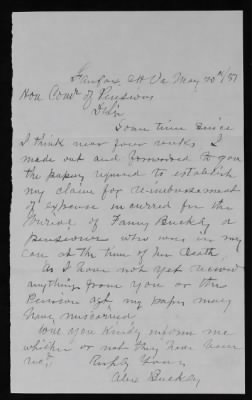 Fairfax CH Va May 20th/87
Hon Comr of Pensions
D Sir
Some time since
I think near four weeks I
made out and forwarded to you
the papers required to establish
my claim for reimbursement
of expense incurred for the
Burial of Fanny Buckly a
pensioner who was in my
care at the time of her death.
As I have not yet received
anything from you or the
Pension agt my papers may
have miscarried
Will you kindly inform me
whether or not they have been
recd.
Respfly Yours
Alex Buckly